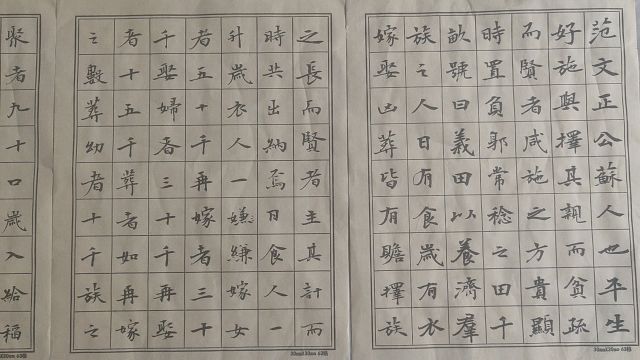 范文正公蘇人也平生
好施與擇其親而貧疏
而賢者咸施之方貴顯
時置負郭常稔之田千
畝號曰義田以養濟羣
族之人日有食歲有衣
嫁娶凶葬皆有贍擇族
之長而賢者主其計而
時共出納焉日食人一
升歲衣人一嫌縑嫁女
者五十千再嫁者三十
千娶婦者三十千再娶
者十五千葬者如再嫁
之數葬幼者十千族之
聚者九十口歲入給福